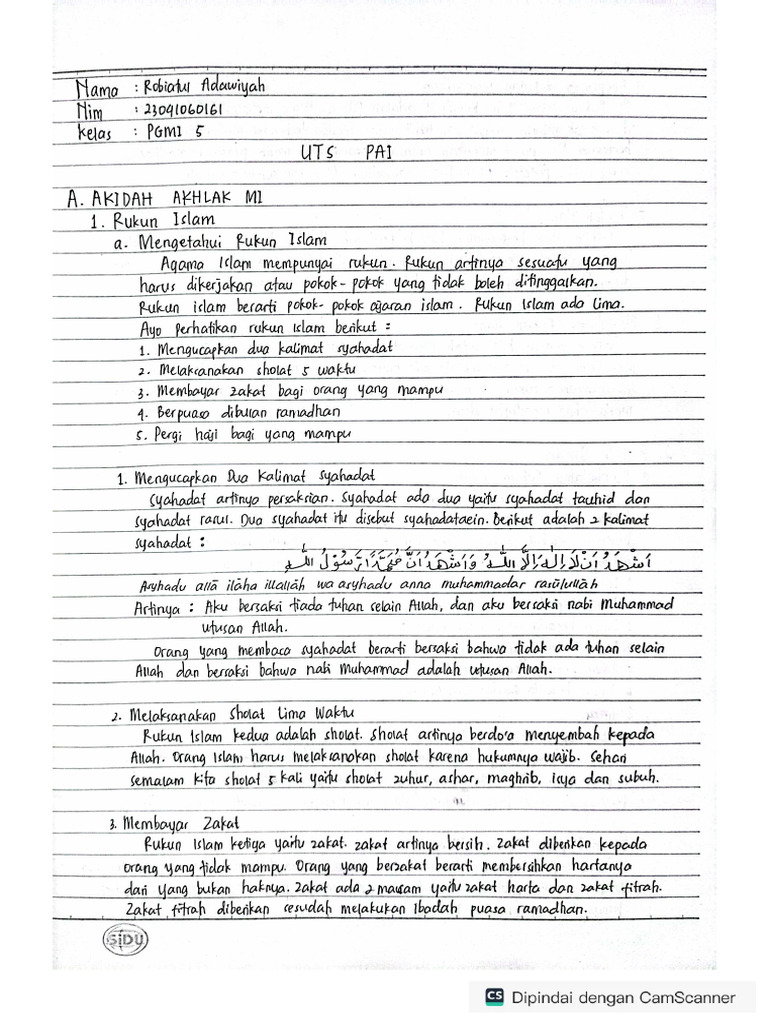 Nama : Robiatul Adawiyah
Nim : 23091060161
Kelas : PGMI 5
UTS PAI
A. AKIDAH AKHLAK MI
1. Rukun Islam
a. Mengetahui Rukun Islam
Agama Islam mempunyai rukun. Rukun artinya sesuatu yang
harus dikerjakan atau pokok-pokok yang tidak boleh ditinggalkan.
Rukun islam berarti pokok-pokok ajaran islam. Rukun Islam ada lima.
Ayo perhatikan rukun islam berikut :
1. Mengucapkan dua kalimat syahadat
2. Melaksanakan sholat 5 waktu
3. Membayar zakat bagi orang yang mampu
4. Berpuasa dibulan ramadhan
5. Pergi haji bagi yang mampu
1. Mengucapkan Dua Kalimat syahadat
Syahadat artinya persaksian. Syahadat ada dua yaitu syahadat tauhid dan
syahadat rasul. Dua syahadat itu disebut syahadataein. Berikut adalah 2 kalimat
syahadat :
اَشْهَدُ اَنْ لَا اِلٰهَ اِلَّا اللّٰهُ وَاَشْهَدُ اَنَّ مُحَمَّدًا رَسُوْلُ اللّٰهِ
Asyhadu allā ilāha illallāh wa asyhadu anna muhammadar rasūlullāh
Artinya : Aku bersaksi tiada tuhan selain Allah, dan aku bersaksi nabi Muhammad
utusan Allah.
Orang yang membaca syahadat berarti bersaksi bahwa tidak ada tuhan selain
Allah dan bersaksi bahwa nabi Muhammad adalah utusan Allah.
2. Melaksanakan Sholat Lima Waktu
Rukun Islam kedua adalah sholat. Sholat artinya berdo'a menyembah kepada
Allah. Orang Islam harus melaksanakan sholat karena hukumnya wajib. Sehari
semalam kita sholat 5 kali yaitu sholat zuhur, ashar, maghrib, isya dan subuh.
3. Membayar Zakat
Rukun Islam ketiga yaitu zakat. zakat artinya bersih. Zakat diberikan kepada
orang yang tidak mampu. Orang yang berzakat berarti membersihkan hartanya
dari yang bukan haknya. Zakat ada 2 macam yaitu zakat harta dan zakat fitrah.
Zakat fitrah diberikan sesudah melakukan Ibadah puasa ramadhan.
SIDU
CS Dipindai dengan CamScanner